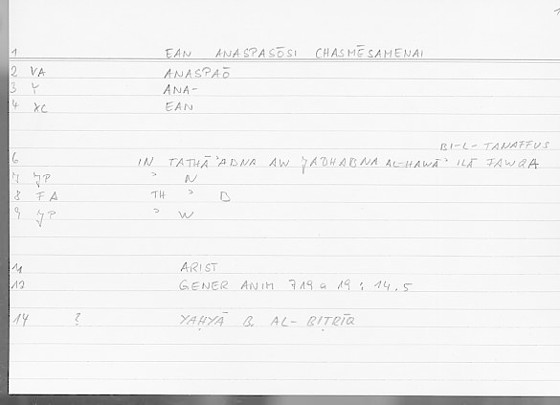 1 EAN ANASPASŌSI CHASMĒSAMENAI
2 VA ANASPAŌ
3 Y ANA-
4 XC EAN
BI-L-TANAFFUS
6 IN TATHĀʾADNA AW JADHABNA AL-HAWĀʾ ILĀ FAWQA
7 JP ʾ N
8 FA TH ʾ D
9 JP ʾ W
11 ARIST
12 GENER ANIM 719 a 19 : 14.5
14 ? YAḤYĀ B. AL-BIṬRĪQ